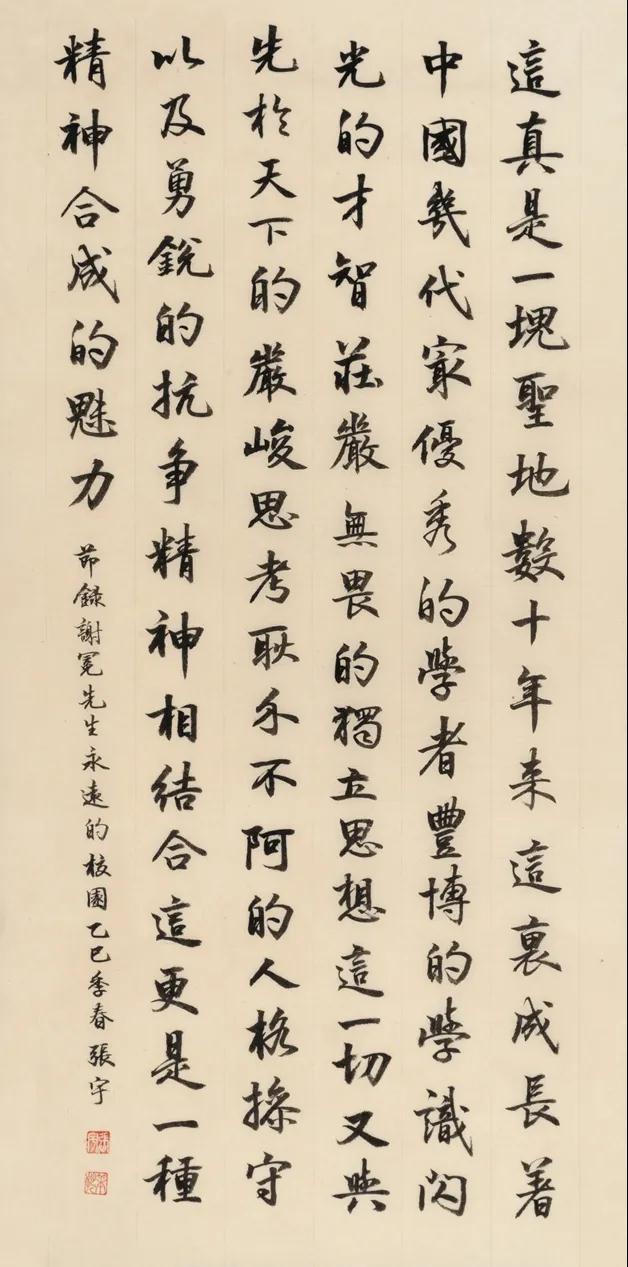 這真是一塊聖地數十年来這裏成長着
中國幾代冣優秀的學者豐博的學識閃
光的才智莊嚴無畏的獨立思想這一切又與
先於天下的嚴峻思考耿介不阿的人格操守
以及勇銳的抗争精神相結合這更是一種
精神合成的魅力
節録謝冕先生永遠的校園乙巳季春張宇